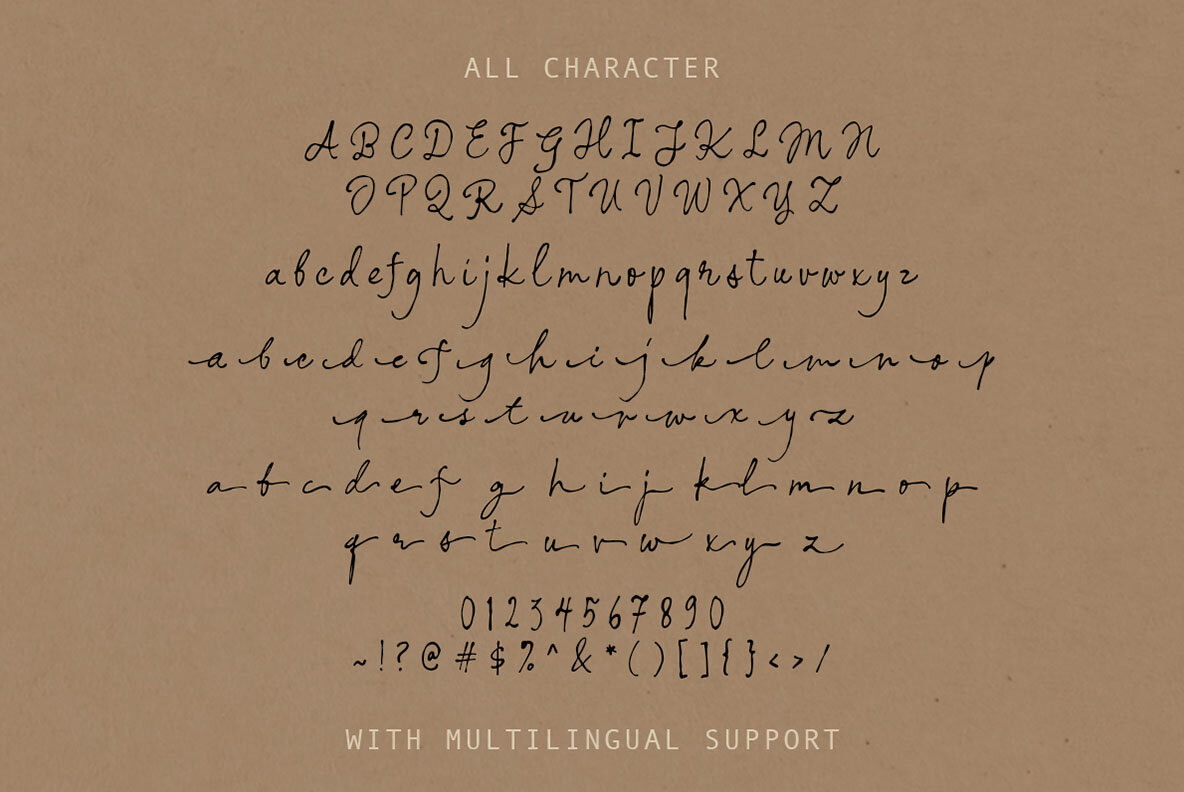 ALL CHARACTER
ABCDEFGHIJKLMN
OPQRSTUVWXYZ
abcdefghijklmnopqrstuvwxyz
abcdefghijklmnop
qrstuvwxyz
abcdefghijklmnop
qrstuvwxyz
01234567890
~!?@#$%^&*()[]{}<>/
WITH MULTILINGUAL SUPPORT